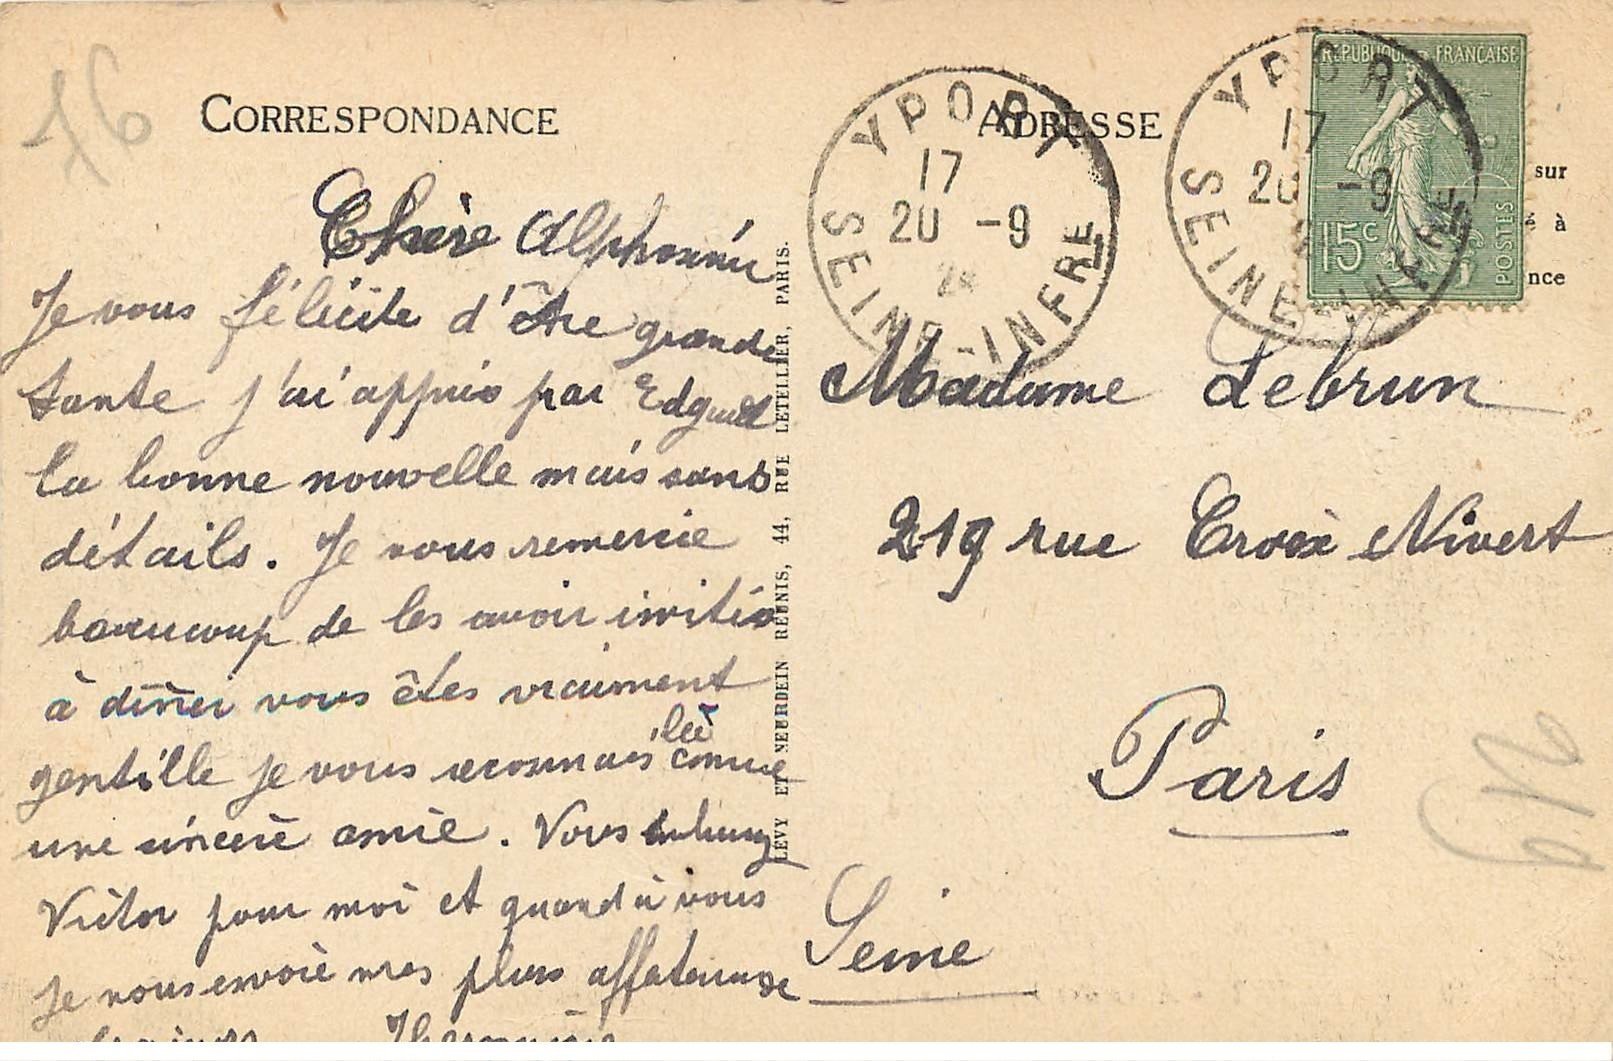 76
CORRESPONDANCE
Chère Alphonsine
Je vous félicite d'être grande
tante j'ai appris par Edgard
la bonne nouvelle mais sans
détails. Je vous remercie
beaucoup de les avoir invités
à dîner vous êtes vraiment
gentille je vous reconnais là comme
une sincère amie. Vous
Victor pour moi et quand à vous
je vous envoie mes plus affectueuse
LEVY ET NEURDEIN REUNIS, 44, RUE LETELLIER, PARIS.
ADRESSE
YPORT
17
20 -9
SEINE-INFRE
YPORT
17
20 -9
SEINE-INFRE
REPUBLIQUE FRANÇAISE
15c
POSTES
sur
é à
nce
Madame Lebrun
219 rue Croix Nivert
Paris
Seine